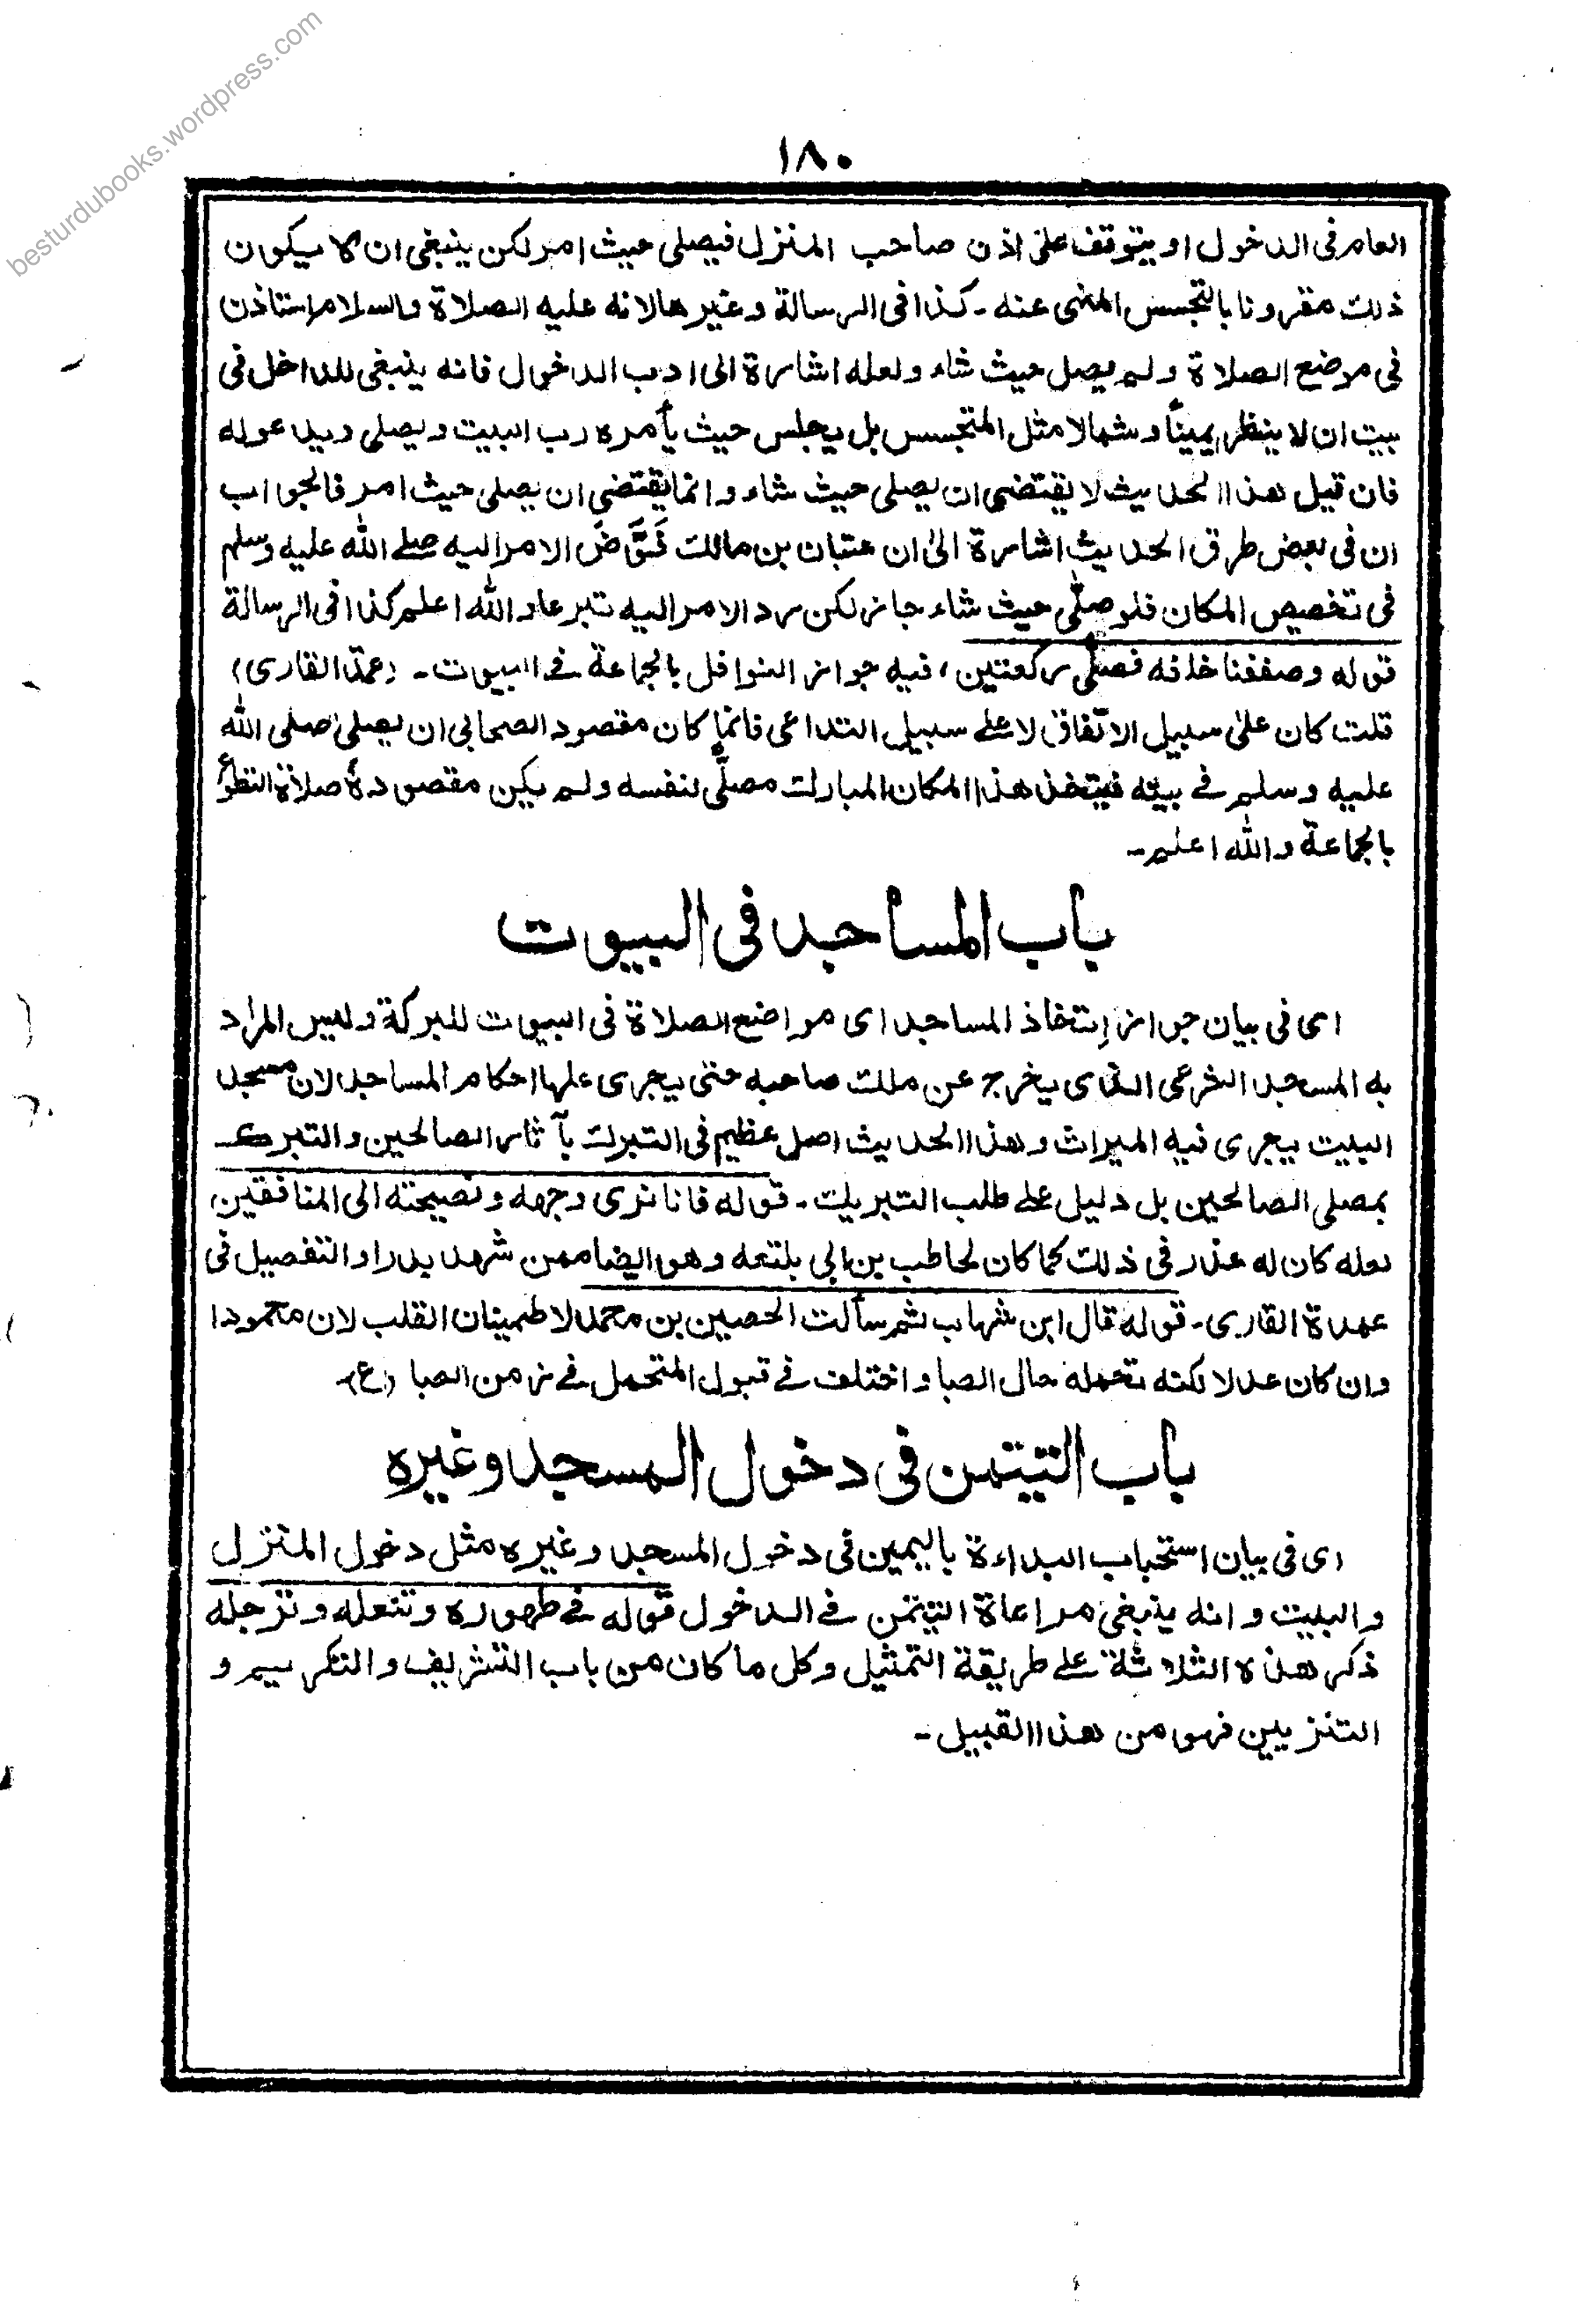 besturdubooks.wordpress.com
١٨٠
العام فى الدخول او يتوقف على اذن صاحب المنزل فيصلى حيث امر لكن ينبغى ان لا يكون
ذلك مقرونا بالتجسس المنهى عنه ـ كذا فى الرسالة وغيرها لانه عليه الصلاة والسلام استاذن
فى موضع الصلاة ولم يصل حيث شاء ولعله اشارة الى ادب الدخول فانه ينبغى للداخل فى
بيت ان لا ينظر يمينًا وشمالا مثل المتجسس بل يجلس حيث يأمره رب البيت ويصلى ويدعو له
فان قيل هذا الحديث لا يقتضى ان يصلى حيث شاء وانما يقتضى ان يصلى حيث امر فالجواب
ان فى بعض طرق الحديث اشارة الىٰ ان عتبان بن مالك فَوَّضَ الامر اليه صلے الله عليه وسلم
فى تخصيص المكان فلو صلّى حيث شاء جاز لكن رد الامر اليه تبرعا والله اعلم كذا فى الرسالة
قوله وصففنا خلفه فصلّى ركعتين، فيه جواز النوافل بالجماعة فے البيوت ـ (عمدۃ القارى)
قلت كان علىٰ سبيل الاتّفاق لا علے سبيل التداعى فانما كان مقصود الصحابى ان يصلى صلى الله
عليه وسلم فے بيته فيتخذ هذا المكان المبارك مصلًّى لنفسه ولم يكن مقصودهُ صلاة التطوع
بالجماعة والله اعلم ـ
باب المساجد فى البيوت
اى فى بيان جواز اِتخاذ المساجد اى مواضع الصلاة فى البيوت للبركة وليس المراد
به المسجد الشرعى الذى يخرج عن ملك صاحبه حتى يجرى عليها احكام المساجد لان مسجد
البيت يجرى فيه الميراث وهذا الحديث اصل عظيم فى التبرك بآثار الصالحين والتبرك
بمصلى الصالحين بل دليل علے طلب التبريك ـ قوله فانا نرى وجهه ونصيحته الى المنافقين
لعله كان له عذر فى ذلك كما كان لحاطب بن ابى بلتعه وهو ايضا ممن شهد بدرا والتفصيل فى
عمدة القارى ـ قوله قال ابن شهاب ثم سألت الحصين بن محمد لاطمينان القلب لان محمودا
وان كان عدلا لكنه تحمله حال الصبا واختلف فے قبول المتحمل فے زمن الصبا (ع)ـ
باب التيمن فى دخول المسجد وغيره
اى فى بيان استحباب البداءة باليمين فى دخول المسجد وغيره مثل دخول المنزل
والبيت وانه ينبغى مراعاة التيمن فے الدخول قوله فے طهوره وتنعله وترجله
ذكر هذه الثلاثة علے طريقة التمثيل وكل ما كان من باب التشريف والتكريم و
التنزيين فهو من هذا القبيل ـ